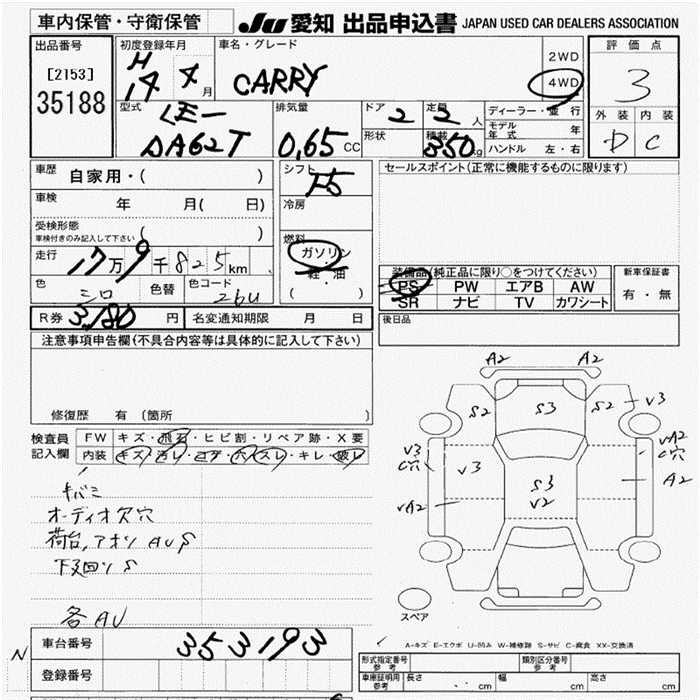 車内保管・守衛保管
JU 愛知 出品申込書 JAPAN USED CAR DEALERS ASSOCIATION
出品番号
[2153]
35188
初度登録年月
H
14 4 月
車名・グレード
CARRY
2WD
4WD
評価点
3
外装 内装
D C
型式
LE-
DA62T
排気量
0,65 CC
ドア
2
定員
2 人
形状
積載
350 kg
ディーラー・並行
モデル年式 年
ハンドル 左・右
車歴
自家用・( )
車検
年 月( 日)
受検形態
車検付きのみ記入して下さい ( )
走行
17万9千825km
色
シロ
色替
色コード
26U
シフト
F5
冷房
燃料
ガソリン
軽・油
( )
セールスポイント(正常に機能するものに限ります)
装備品(純正品に限り○をつけてください)
PS PW エアB AW
SR ナビ TV カワシート
新車保証書
有・無
後日品
R券 3,180 円 名変通知期限 月 日
注意事項申告欄(不具合内容等は具体的に記入して下さい)
修復歴 有(箇所 )
検査員記入欄
FW キズ・飛石・ヒビ割・リペア跡・X要
内装 キズ・汚レ・コゲ・穴・スレ・キレ・破レ
キバミ
オーディオ欠穴
荷台,アオリ AUS
下廻リS
各AU
A2 A2
S2 S3 S2 V3
V3
C穴
V3
VA2
C穴
A2
S3
V2
VA2
スペア
A-キズ E-エクボ U-凹み W-補修跡 S-サビ C-腐食 XX-交換済
N
車台番号 353193
登録番号
形式指定番号
参考
類別区分番号
参考
車庫証明用
参考
長さ cm 幅 cm 高さ cm